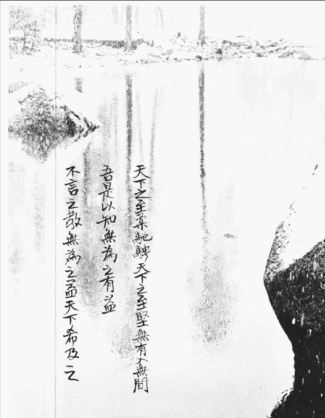 天下之至柔馳騁天下之至堅無有入無間
吾是以知無為之有益
不言之教無為之益天下希及之